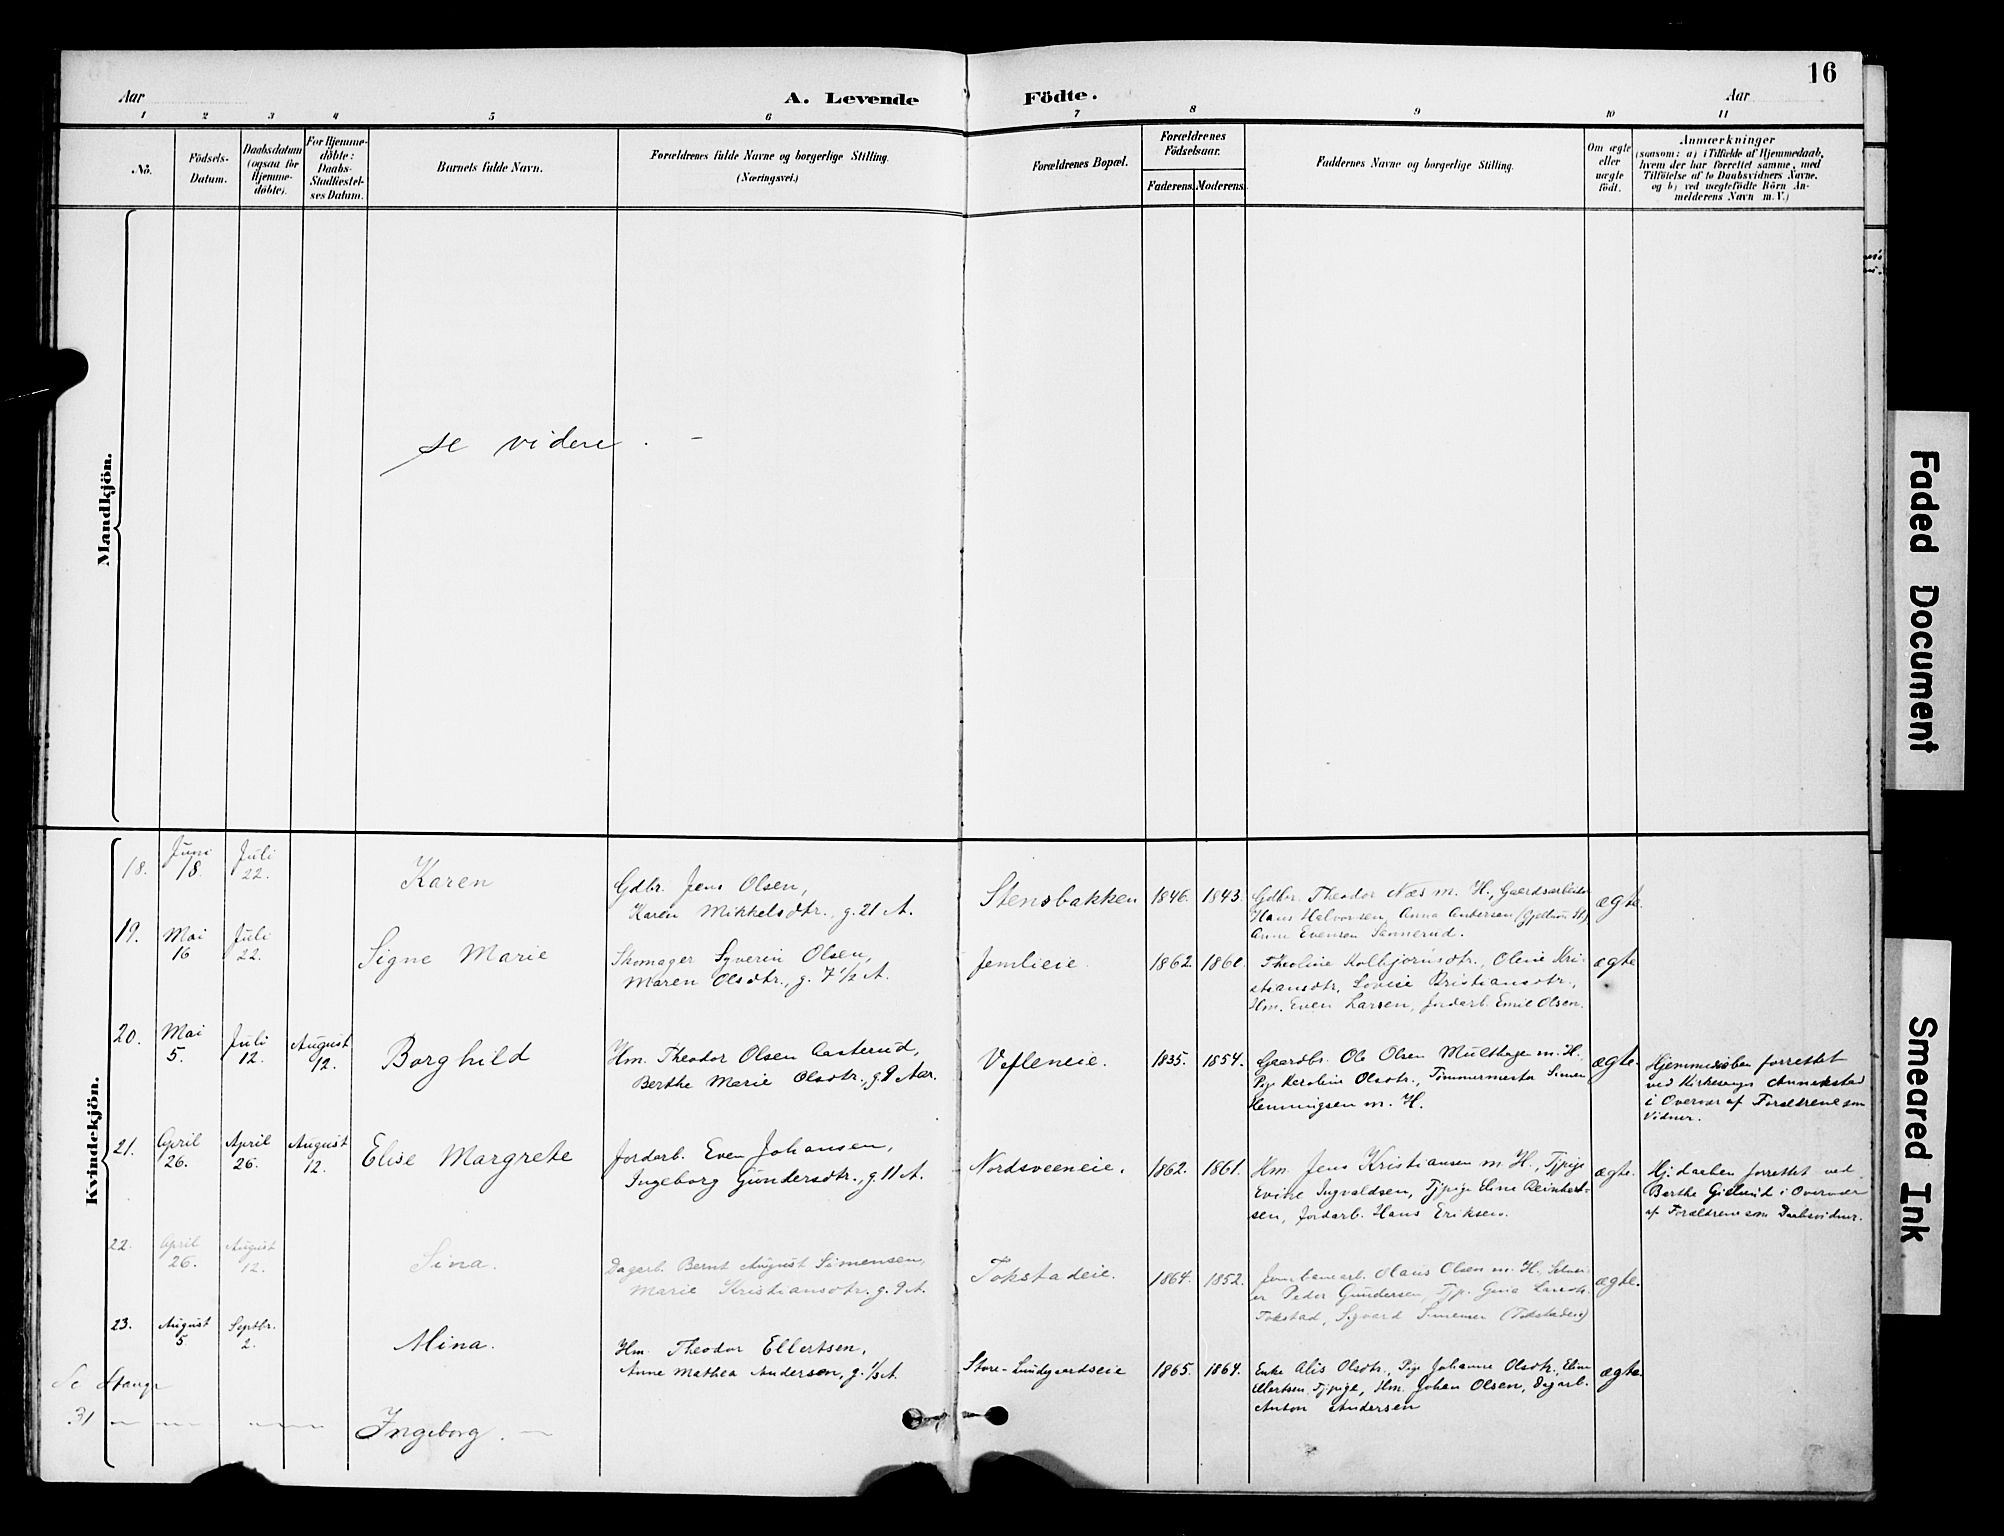 16
Aar
A. Levende Födte.
Aar
1 2 3 4 5 6 7 8 9 10 11
No.
Födsels-
Datum.
Daabsdatum
(ogsaa for
Hjemme-
döbte).
For Hjemme-
döbte:
Daabs-
Stadfæstel-
ses Datum.
Barnets fulde Navn.
Forældrenes fulde Navne og borgerlige Stilling.
(Næringsvei.)
Forældrenes Bopæl.
Forældrenes
Födselsaar.
Faderens. Moderens.
Faddernes Navne og borgerlige Stilling.
Om ægte
eller
uægte
födt.
Anmærkninger
(saasom: a) i Tilfælde af Hjemmedaab,
hvem der har forrettet samme, med
Tilföielse af to Daabsvidners Navne,
og b) ved uægtefödte Börn An-
melderens Navn m. V.)
Mandkjön.
se videre. -
Kvindekjön.
18.
Juni
18.
Juli
22.
Karen
Gdbr. Jens Olsen,
Karen Mikkelsdtr., g. 21 A.
Stensbakken
1846. 1843.
Gdbr. Theodor Næs m. H., Gaardsarbeider
Hans Halvorsen, Anna Andersen
Anne Evensen Sannerud.
ægte.
19.
Mai
16
Juli
22.
Signe Marie
Skomager Syverin Olsen,
Maren Olsdtr., g. 7 1/2 A.
Jemlieie.
1862. 1860.
Theoline Kolbjörnsdtr., Oline Kri-
stiansdtr., Lovise Kristiansdtr.,
Hm. Even Larsen, Jordarb. Emil Olsen.
ægte
20.
Mai
5.
Juli
12.
August
12.
Borghild
Hm. Theodor Olsen Aasterud,
Berthe Marie Olsdtr., g. 9 Aar.
Vefleneie.
1835. 1854.
Gaardbr. Ole Olsen Multhagen m. H.
Pige Karoline Olsdtr., Tömmermester Simen
Henningsen m. H.
ægte.
Hjemmedaaben forrettet
ved Kirkesanger Annekstad
i Overvær af Forældrene som
Vidner.
21.
April
26.
April
26.
August
12.
Elise Margrete
Jordarb. Even Johansen,
Ingeborg Gundersdtr., g. 11 A.
Nordsveeneie.
1862. 1861.
Hm. Jens Kristiansen m. H., Tjpige
Evine Ingvaldsen, Tjpige Eline Reinhert-
sen, Jordarb. Hans Eriksen.
ægte.
Hj. daaben forrettet ved
Berthe Gielund i Overvær
af Forældrene som Daabsvidner.
22.
April
26.
August
12.
Sina.
Dagarb. Bernt August Simensen,
Marie Kristiansdtr. g. 9 A.
Tokstadeie.
1864. 1852.
Jernbanearb. Olaus Olsen m. H.,
Peder Gundersen, Tjp. Gina
Tokstad, Sigvard Simensen (Tokstadeie)
ægte.
23.
August
5.
Septbr.
2.
Mina.
Hm. Theodor Ellertsen,
Anne Mathea Andersen, g. 1/3 A.
Store-Lundgaardseie
1865. 1864.
Enke Alis Olsdtr., Pige Johanne Olsdtr., Eline
Ellertsen Tjpige, Hm. Johan Olsen, Dagarb.
Anton Andersen
ægte.
Se Stange
31 — — —
Ingeborg. —
Faded Document
Smeared Ink